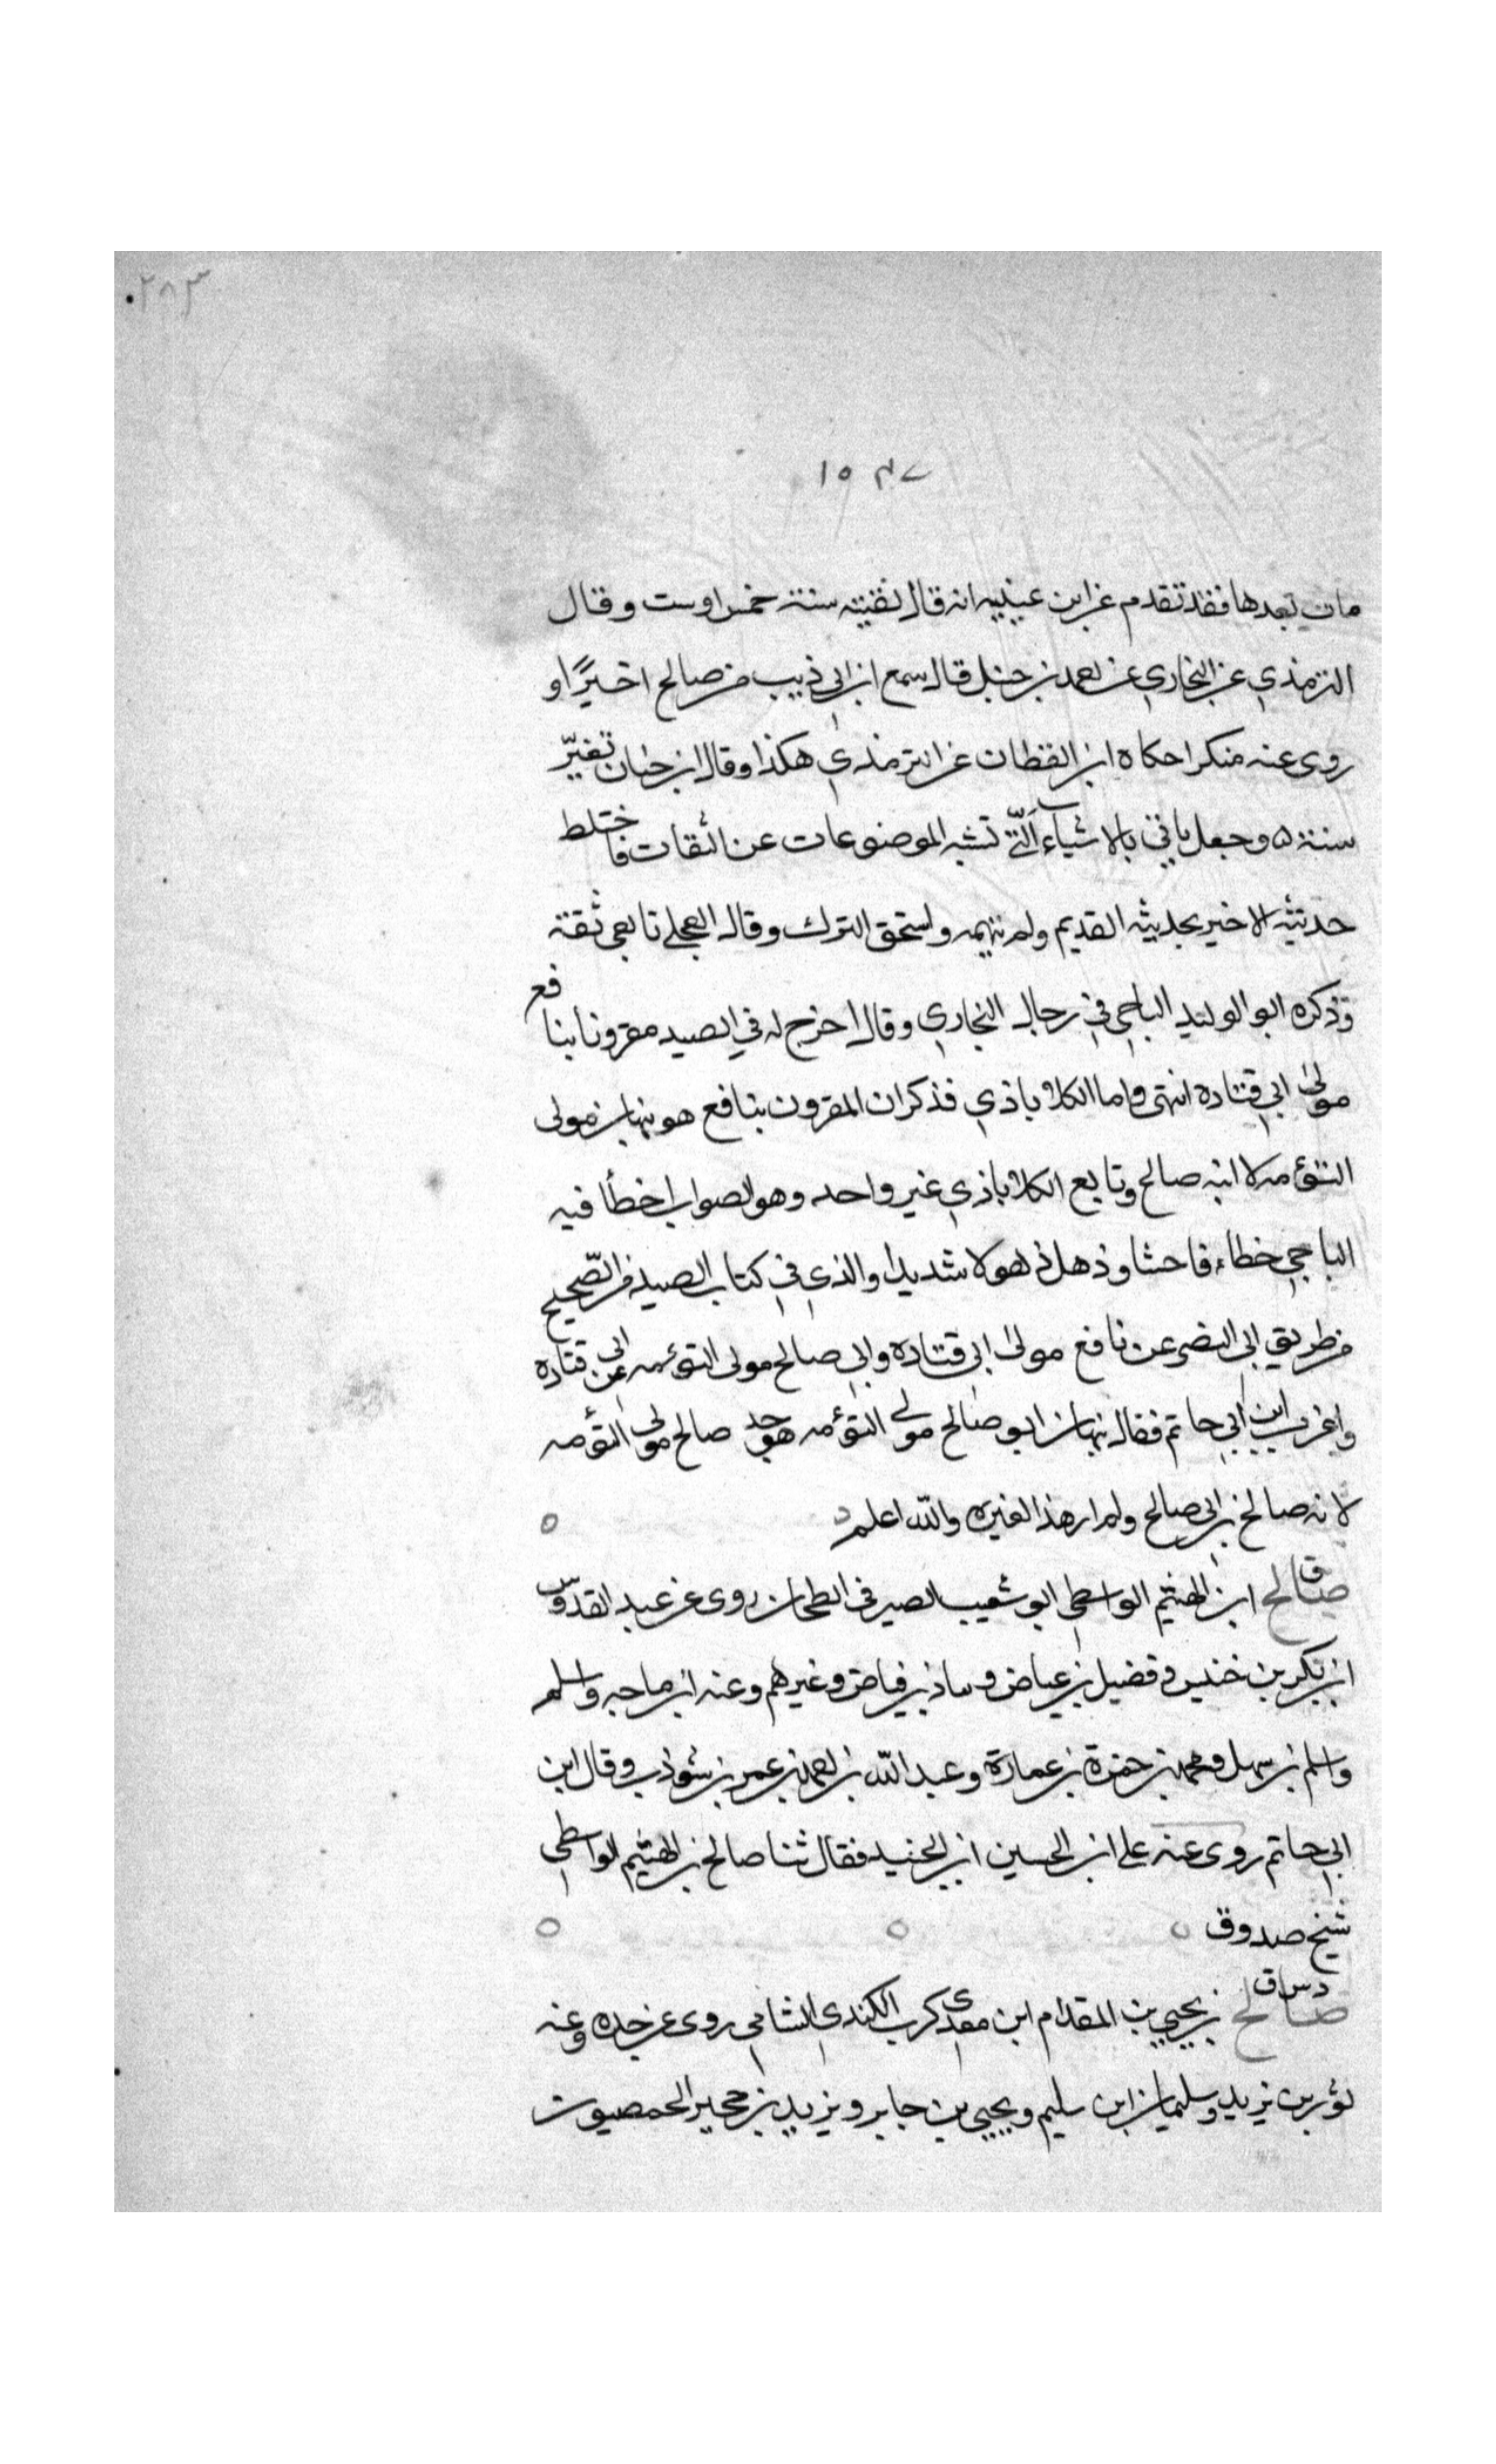 ٢٨٣
١٥٤٧
مات بعدها فقد تقدم عن ابن عيينيه انه قال لقيته سنة خمس اوست وقال
الترمذي عن البخاري عن احمد بن حنبل قال سمع ابن ابي ذييب من صالح اخيرًا و
روى عنه منكرا حكاه ابن القطان عن الترمذي هكذا وقال ابن حبان تغيّر
سنة ٥ وجعل ياتي بالاشياء الّتي تشبه الموضوعات عن الثقات فاختلط
حديثه الاخير بحديثه القديم ولم يتميمه واستحق الترك وقال العجلي تابعي ثقة
وذكره ابو الوليد الباجي في رجال البخاري وقال اخرج له في الصيد مقرونا بنافع
مولى ابي قتاده انتهى واما الكلاباذي فذكر ان المقرون بنافع هو نبهان مولى
التوءمه لا ابنه صالح وتابع الكلاباذي غير واحد وهو الصواب اخطأ فيه
الباجي خطاء فاحشا وذهل ذهولا شديدا والذي في كتاب الصيد من الصّحيح
من طريق ابى النضر عن نافع مولى ابى قتاده وابى صالح مولى التوءمه عن ابى قتاده
واغرب ابن ابي حاتم فقال نبهان ابو صالح مولى التوءمه هو جد صالح مولى التوءمه
لانه صالح بن ابى صالح ولم ار هذا لغيره والله اعلم
ق
صالح ابن الهيثم الواسطي ابو شعيب الصيرفى الطحان روى عن عبد القدّوس
ابن بكر بن خنيس وفضيل بن عياض وشاذ بن فياض وغيرهم وعنه ابن ماجه واسلم
واسلم بن سهل ومحمد بن حمزة بن عمارة وعبد الله بن احمد بن عمر بن شوذب وقال ابن
ابي حاتم روى عنه علي ابن الحسين ابن الجنيد فقال ثنا صالح بن الهيثم الواسطي
شيخ صدوق
د س ق
صالح بن يحيى بن المقدام ابن معدى كرب الكندى الشامي روى عن جده وعنه
ثور بن يزيد وسليمان ابن سليم ويحيى بن جابر ويزيد بن حجير الحمصيون